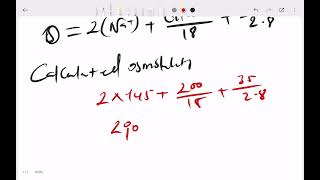 = 2(Na+) + /18 + /2.8
Calculated osmolality
2 × 145 + 200/18 + 35/2.8
290